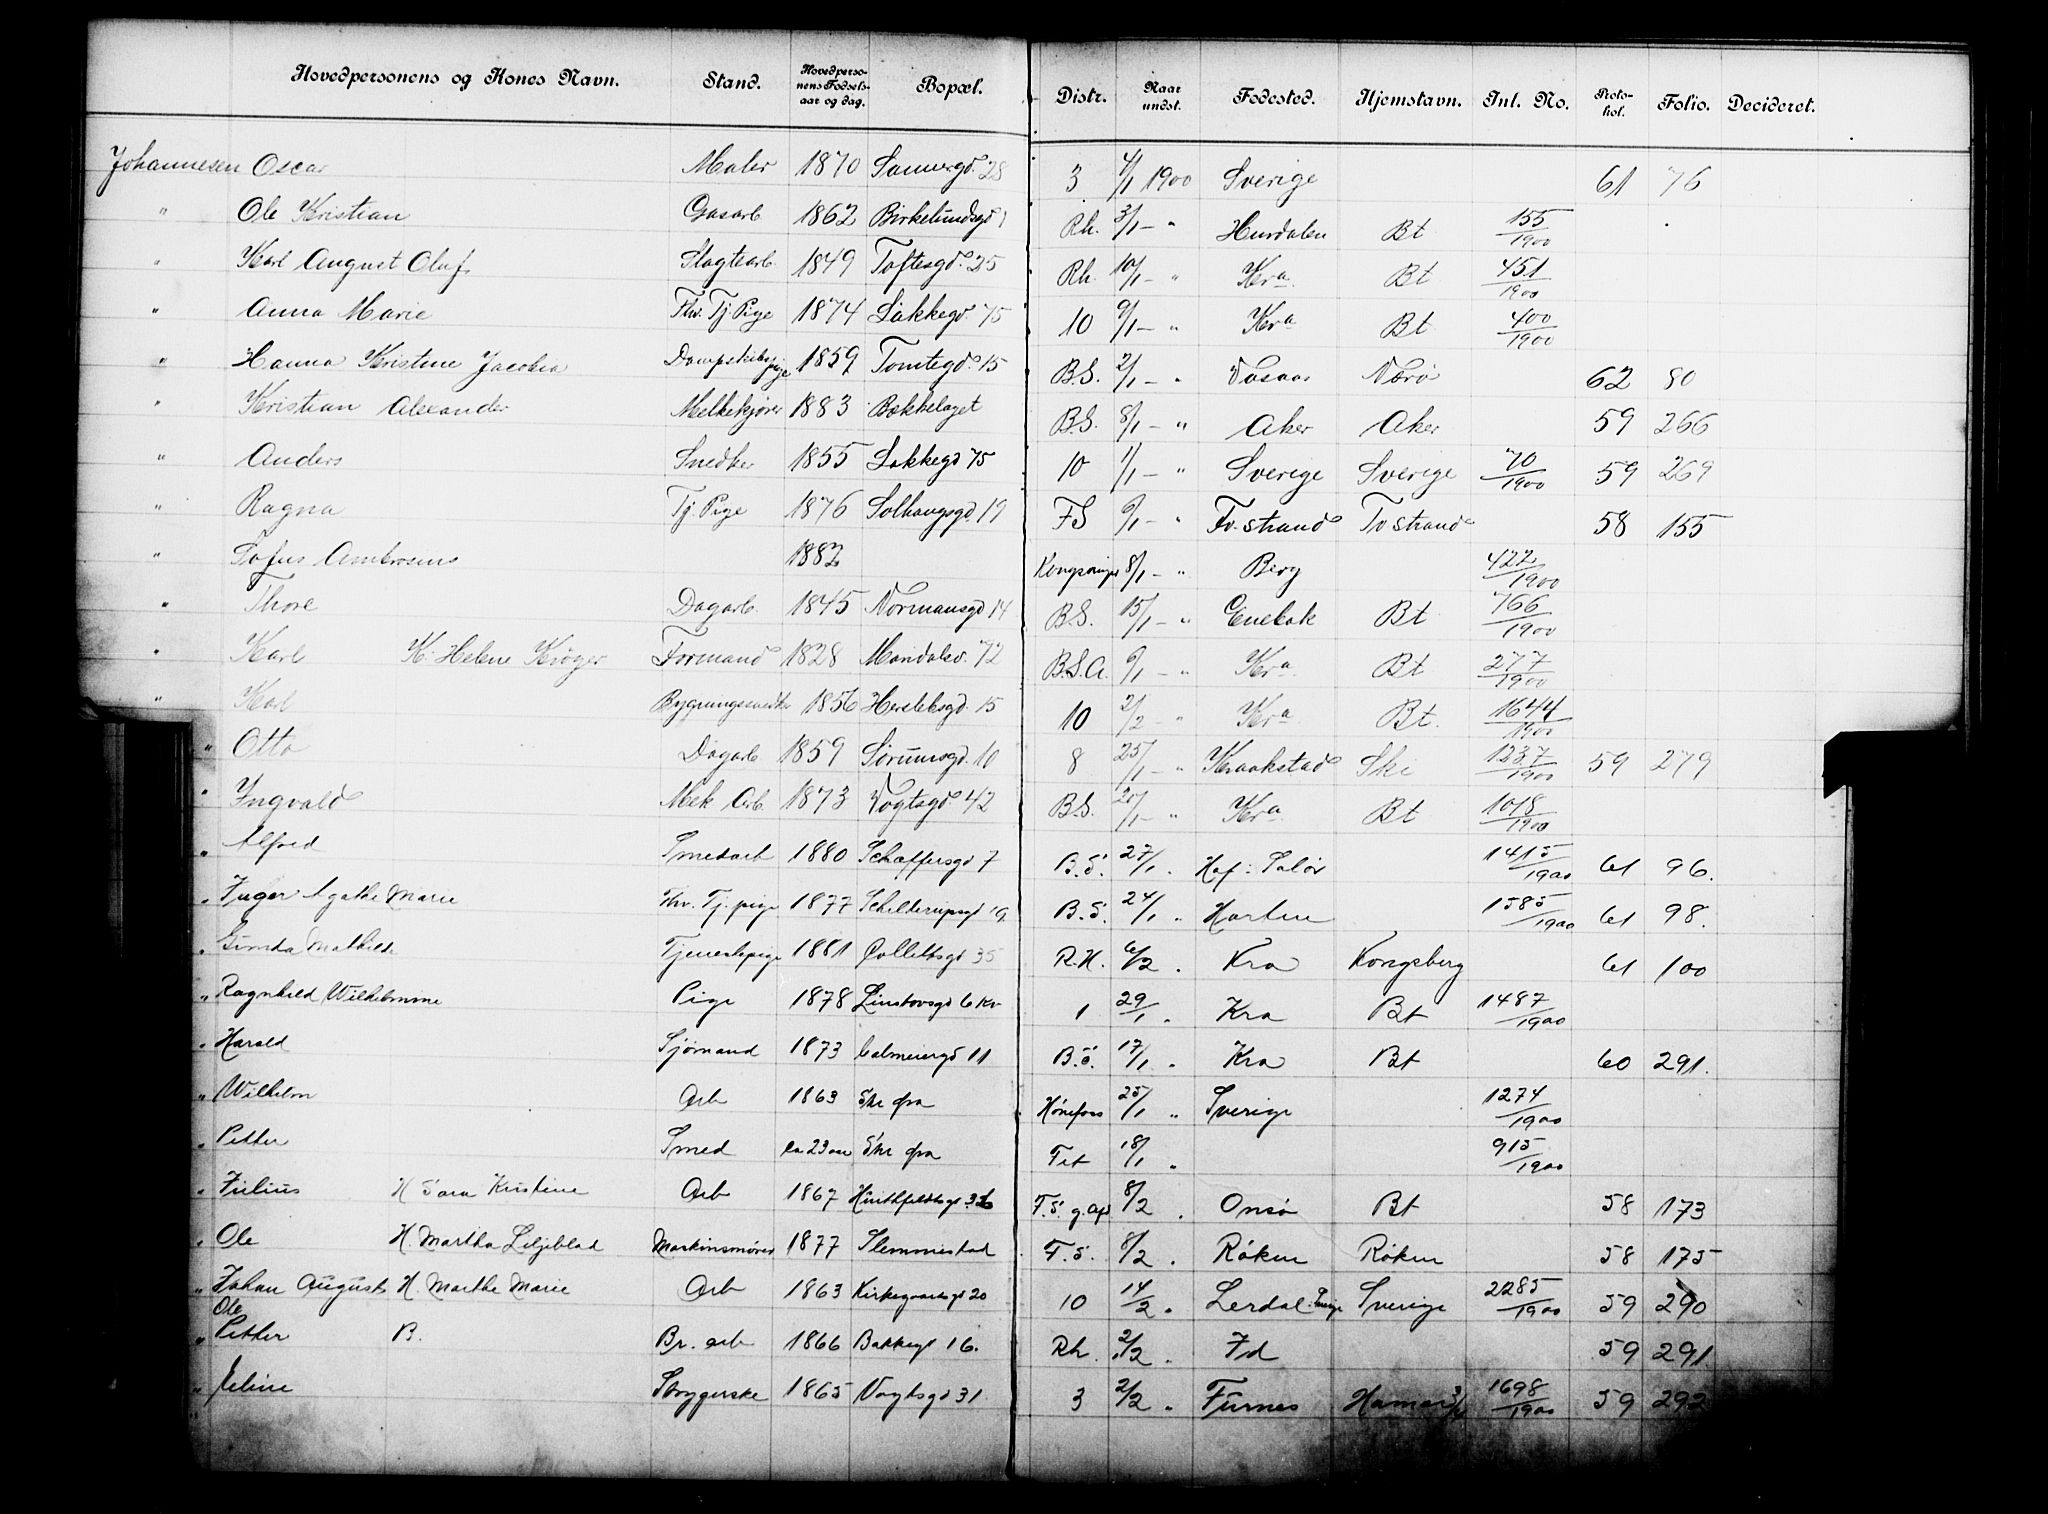 Hovedpersonens og Kones Navn. Stand. Hovedpersonens Fødselsaar og dag. Bopæl. Distr. Naar undst. Fødested. Hjemstavn. Int. No. Protokol. Folio. Decideret.
Johannesen Oscar Maler 1870 Sannergd. 28 3 4/1 1900 Sverige 61 76
" Ole Kristian Gasarb 1862 Birkelundsgd 1 Rh. 3/1 - " Hurdalen Bt 155/1900
" Karl August Oluf Slagtearb. 1849 Toftesgd. 25 Rh. 10/1 - " Kra. Bt 451/1900
" Anna Marie Fhv. Tj. Pige 1874 Lakkegd. 75 10 9/1 - " Kra Bt 400/1900
" Hanna Kristine Jacobia Dampskibspige 1859 Tomtegd. 15 B.S. 2/1 - " Nærø 62 80
" Kristian Alexander Melkekjører 1883 Bækkelaget B.S. 8/1 - " Aker Aker 59 266
" Anders Snedker 1855 Lakkegd 75 10 1/1 - " Sverige Sverige 70/1900 59 269
" Ragna Tj. Pige 1876 Solhaugsgd 19 FS 6/1 - " Tv. strand Tv strand 58 155
" Tofus Ambrosius 1882 Kongsvinger 8/1 - " Berg 422/1900
" Thore Dagarb. 1845 Normansgd 14 B.S. 15/1 - " Enebak Bt 766/1900
" Karl K. Helene Krøger Formand 1828 Mandalsv. 72 B.S.A. 6/1 - " Kra. Bt 277/1900
" Karl Bygningssnedker 1856 Herslebsgd. 15 10 2/2 - " Kra. Bt. 1644/1900
" Otto Dagarb 1859 Sørumsgd. 10 8 25/1 - " Kraakstad Ski 1237/1900 59 279
" Ingvald Mek Arb. 1873 Vogtsgd 42 B.S. 20/1 - " Kra. Bt 1018/1900
" Alfred Smedarb 1880 Schæffersgd 7 B.S. 27/1 . Hof i Solør 1415/1900 61 96.
" Inger Agathe Marie Fhv. Tj. pige 1877 Schilderupsgd 19 B.S. 24/1 " Horten 1585/1900 61 98.
" Gunda Mathilde Tjenestepige 1881 Collettsgd 35 R.H. 6/2 . Kra Kongsberg 61 100
" Ragnhild Wilhelmine Pige 1878 Linstowsgd 6 Kv 1 29/1 . Kra Bt 1487/1900
" Harald Sjømand 1873 Calmeyergd 11 B.S. 17/1 . Kra Bt 60 291.
" Wilhelm Arb 1863 Skr fra Hønefoss 25/1 " Sverige 1274/1900
" Petter Smed ca 23 aar Skr fra Fet 18/1 " 915/1900
" Julius H Sara Kristine Arb 1867 Huitfeldtsgd 32b F.S. g. afd. 8/2 . Onsø Bt 58 173
" Ole H. Martha Liljeblad Maskinsmører 1877 Slemmestad F.S. 8/2 . Røken Røken 58 175
" Johan August H. Marthe Marie Arb 1863 Kirkegaardsgd 20 10 14/2 . Lerdal Sverige Sverige 2285/1900 59 290
Ole
" Petter B. Br. arb 1866 Bakkegt 16. Rh. 2/2 . Id 59 291.
" Jeline Strygerske 1865 Vogtsgd 31. 3 2/2 . Furnes Hamar 1698/1900 59 292